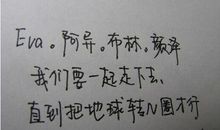 Eva。阿异。布林。颜泽
我们要一起走下去、
直到把地球转N圈才行